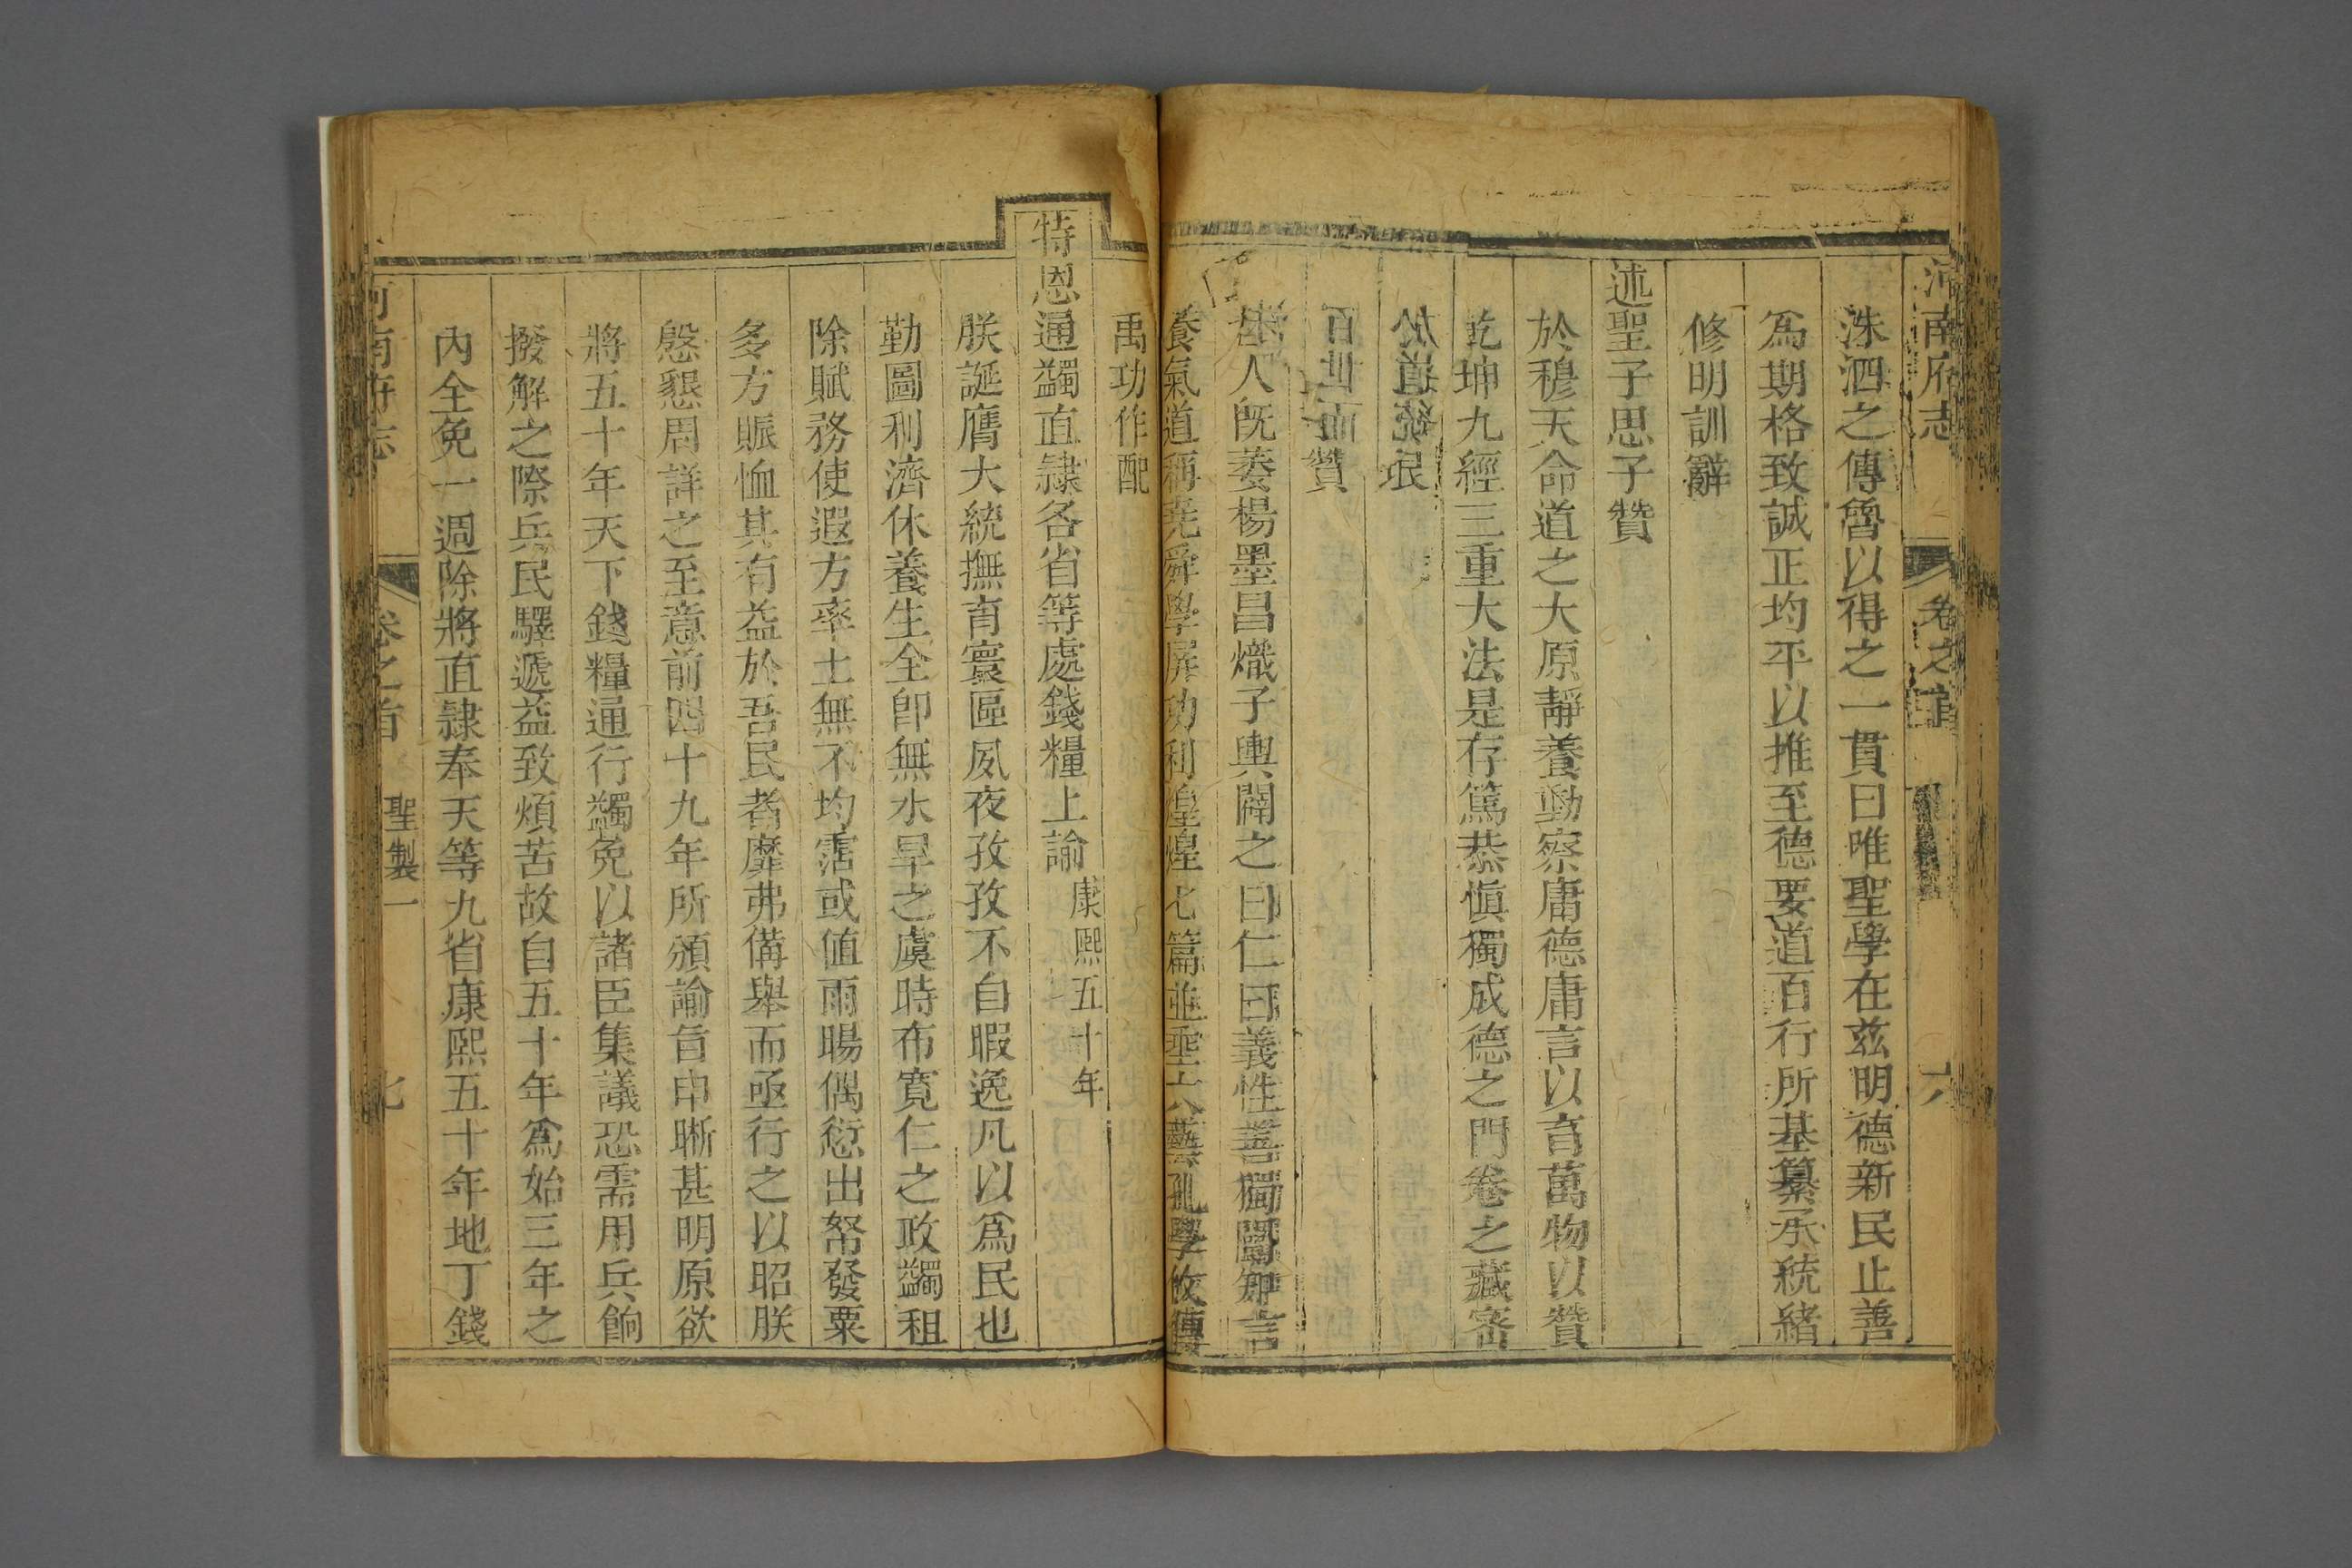 河南府志 卷之首 六
洙泗之傳魯以得之一貫曰唯聖學在茲明德新民止善
爲期格致誠正均平以推至德要道百行所基纂承統緖
修明訓辭
述聖子思子贊
於穆天命道之大原靜養動察庸德庸言以育萬物以贊
乾坤九經三重大法是存篤恭愼獨成德之門卷之藏密
於
百世
人旣萎楊墨昌熾子輿闢之曰仁曰義性善獨闡知言
養氣道稱堯舜學屏功利煌煌七篇並垂六藝孔學攸傳
禹功作配
特恩通蠲直隷各省等處錢糧上諭康熙五十年
朕誕膺大統撫育寰區夙夜孜孜不自暇逸凡以爲民也
勤圖利濟休養生全卽無水旱之虞時布寬仁之政蠲租
除賦務使遐方率土無不均霑或値雨暘偶愆出帑發粟
多方賑恤其有益於吾民者靡弗備舉而亟行之以昭朕
慇懇周詳之至意前四十九年所頒諭旨申晰甚明原欲
將五十年天下錢糧通行蠲免以諸臣集議恐需用兵餉
撥解之際兵民驛遞益致煩苦故自五十年爲始三年之
內全免一週除將直隷奉天等九省康熙五十年地丁錢
河南府志 卷之首 聖製一 七